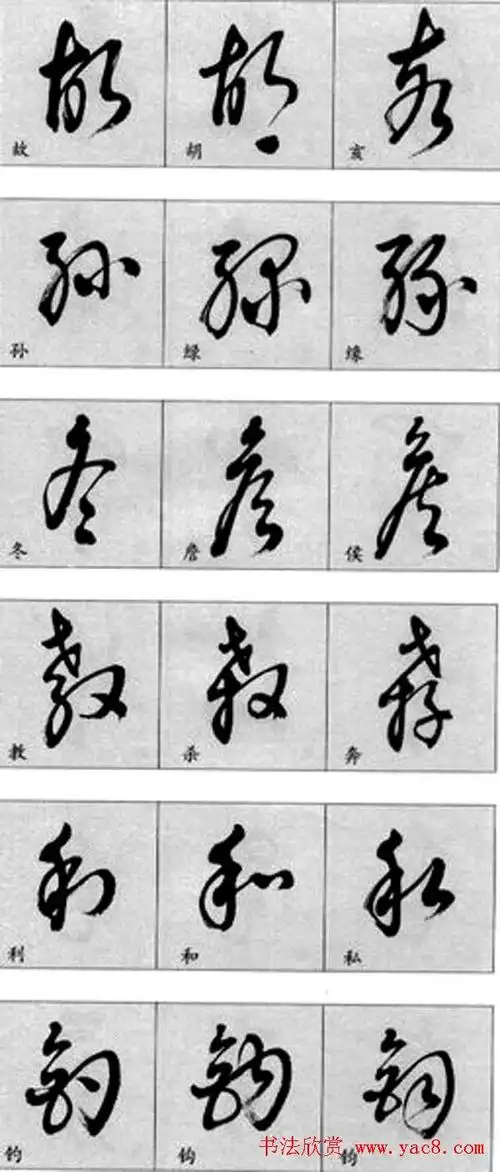 故 胡 亥
孙 绿 缘
冬 詹 侯
教 杀 奔
利 和 私
书法欣赏 www.yac8.com